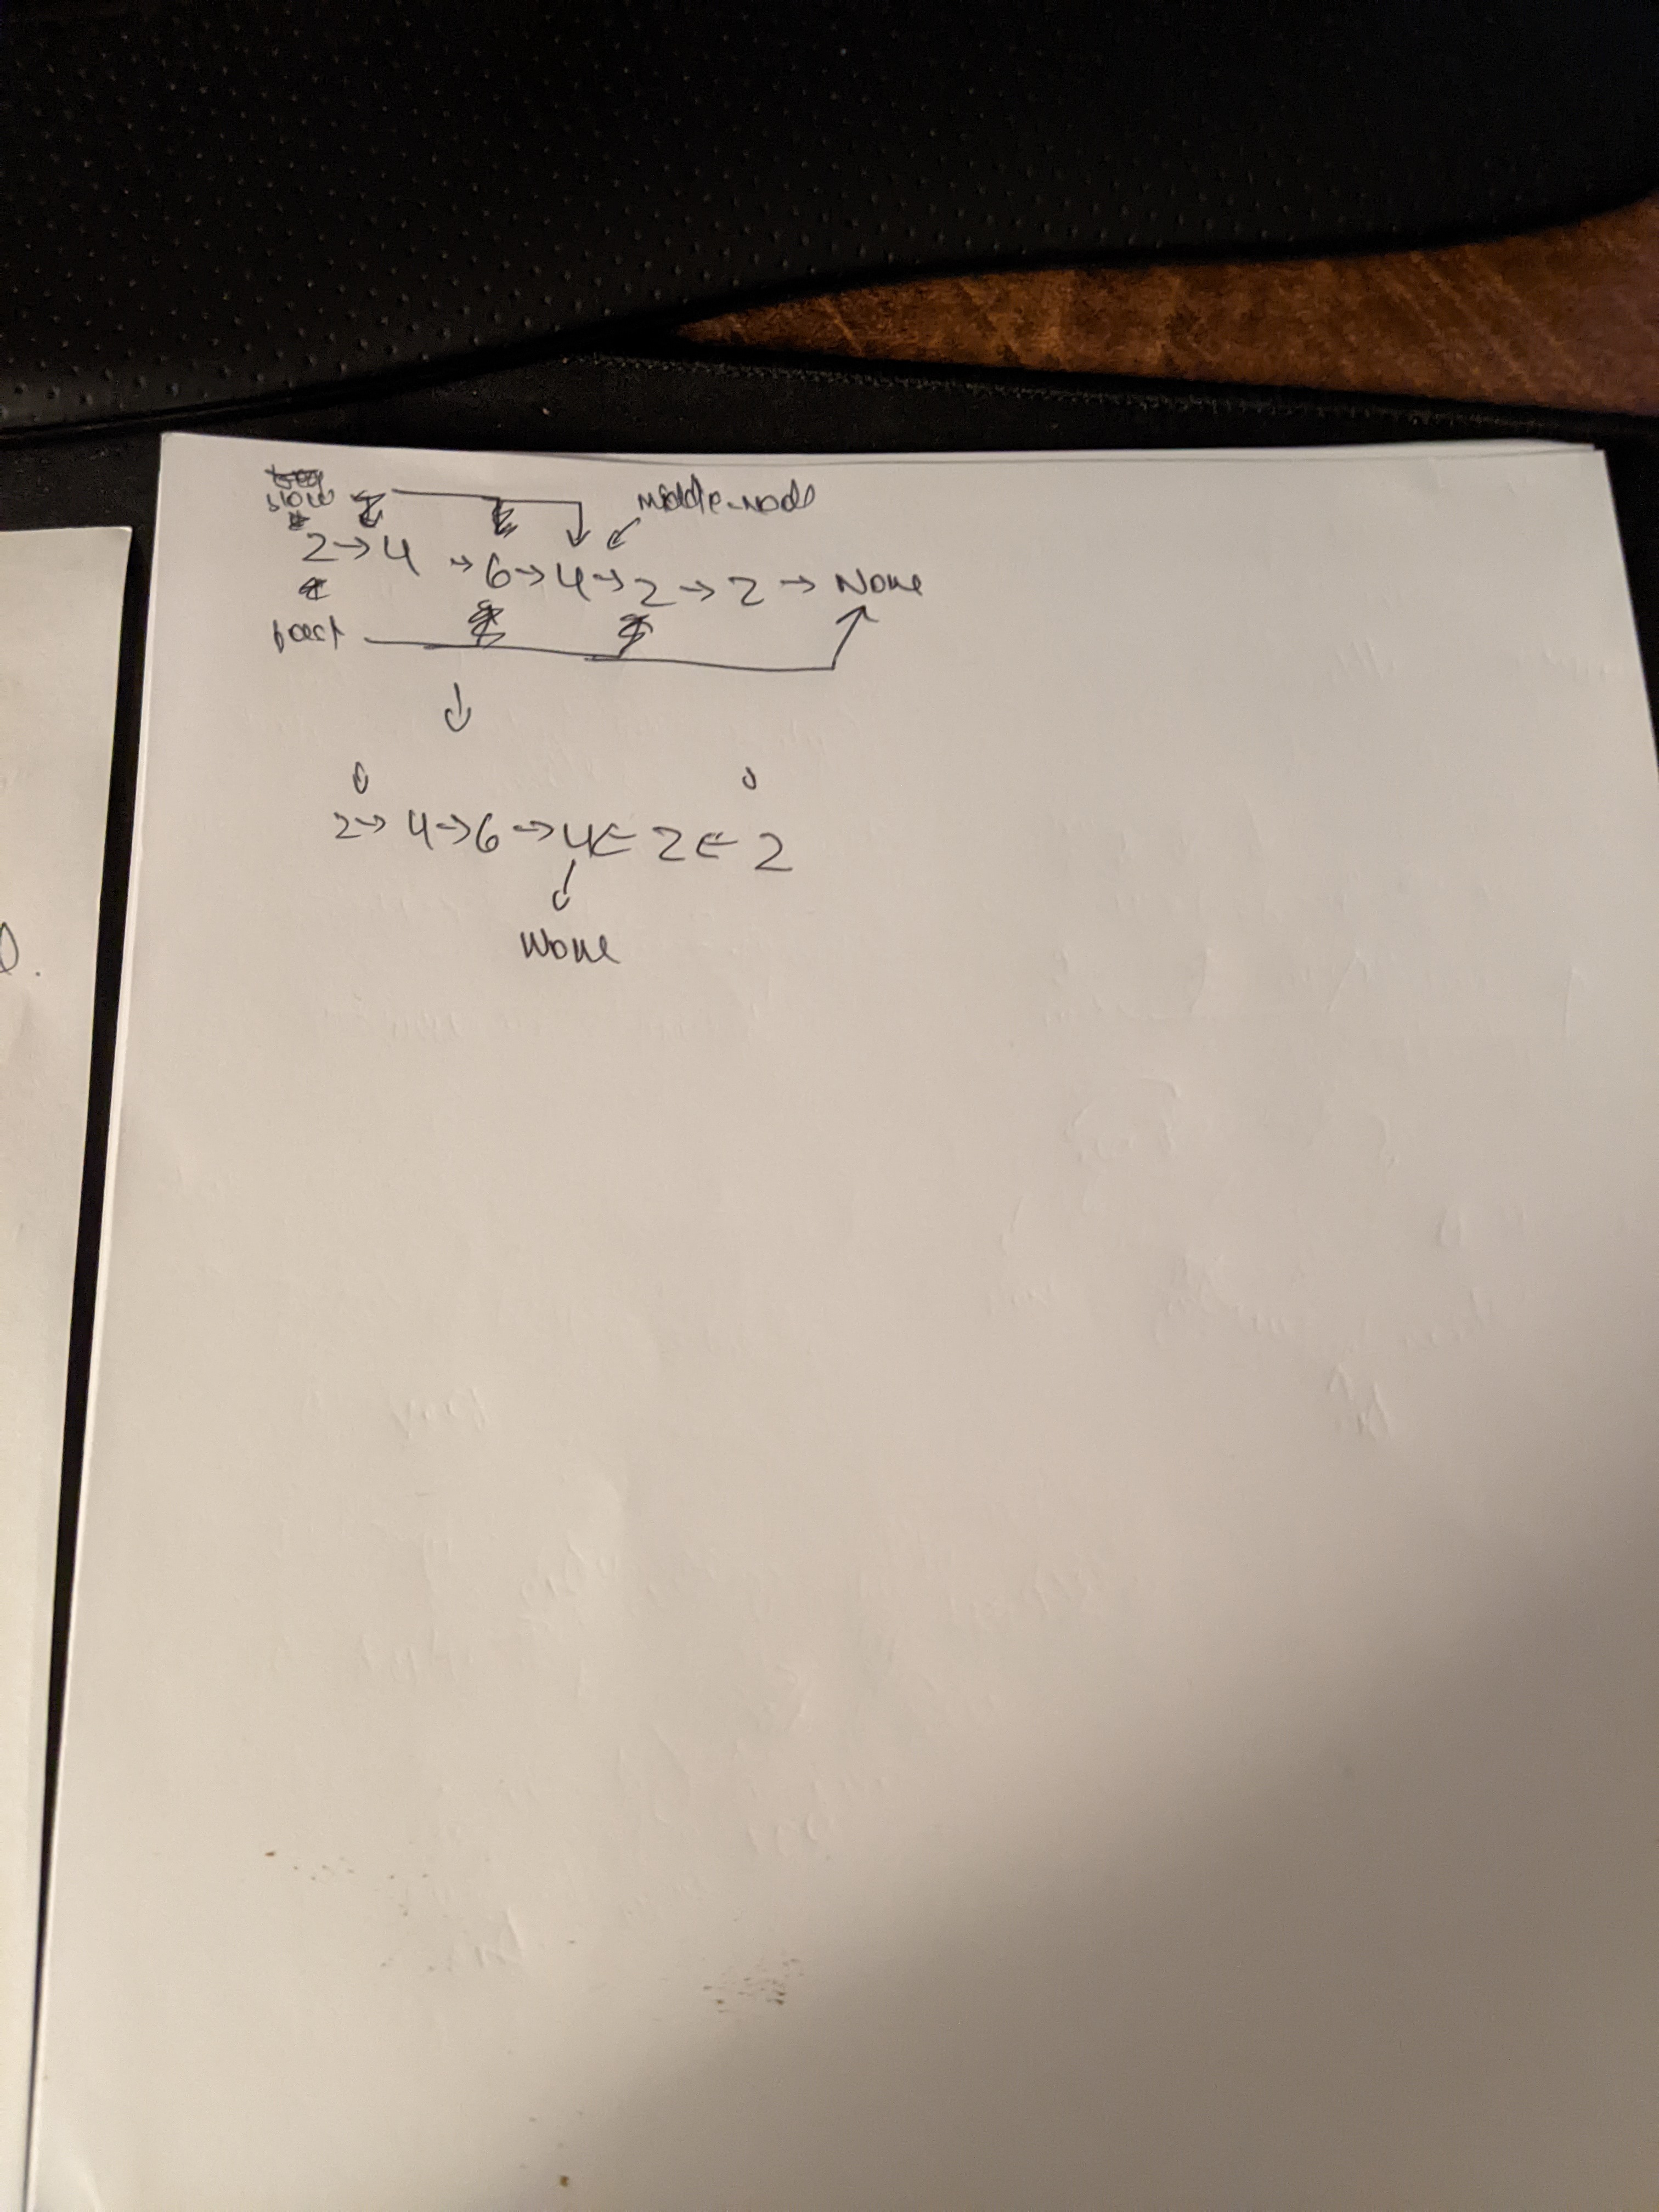 slow
middle-node
2→4→6→4→2→2→None
fast
2→4→6→4←2←2
None
D.